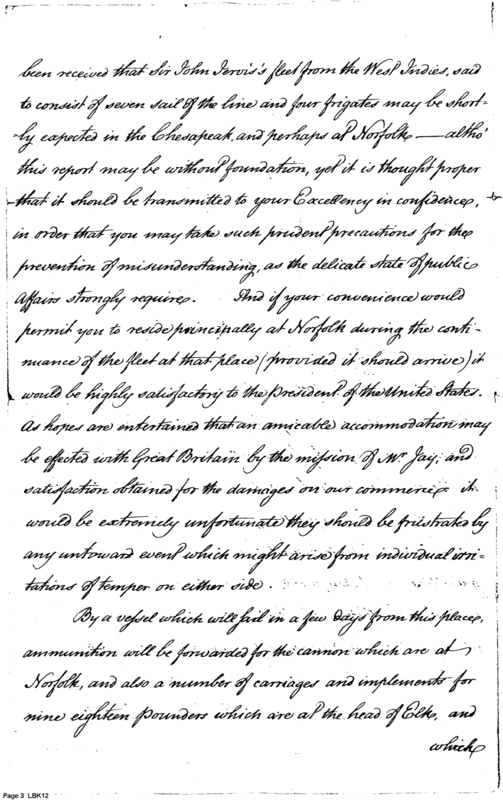 been received that Sir John Jervis's fleet from the West Indies, said
to consist of seven sail of the line and four frigates may be short=
=ly expected in the Chesapeak, and perhaps at Norfolk — altho'
this report may be without foundation, yet it is thought proper
that it should be transmitted to your Excellency in confidence,
in order that you may take such prudent precautions for the
prevention of misunderstanding, as the delicate state of public
Affairs strongly require. And if your convenience would
permit you to reside principally at Norfolk during the conti-
nuance of the fleet at that place (provided it should arrive) it
would be highly satisfactory to the President of the United States.
As hopes are entertained that an amicable accommodation may
be effected with Great Britain by the mission of Mr. Jay, and
satisfaction obtained for the damages on our commerce it
would be extremely unfortunate they should be frustrated by
any untoward event which might arise from individual irri-
tations of temper on either side.
By a vessel which will sail in a few days from this place,
ammunition will be forwarded for the cannon which are at
Norfolk, and also a number of carriages and implements for
nine eighteen pounders which are at the head of Elk, and
which
Page 3 LBK12